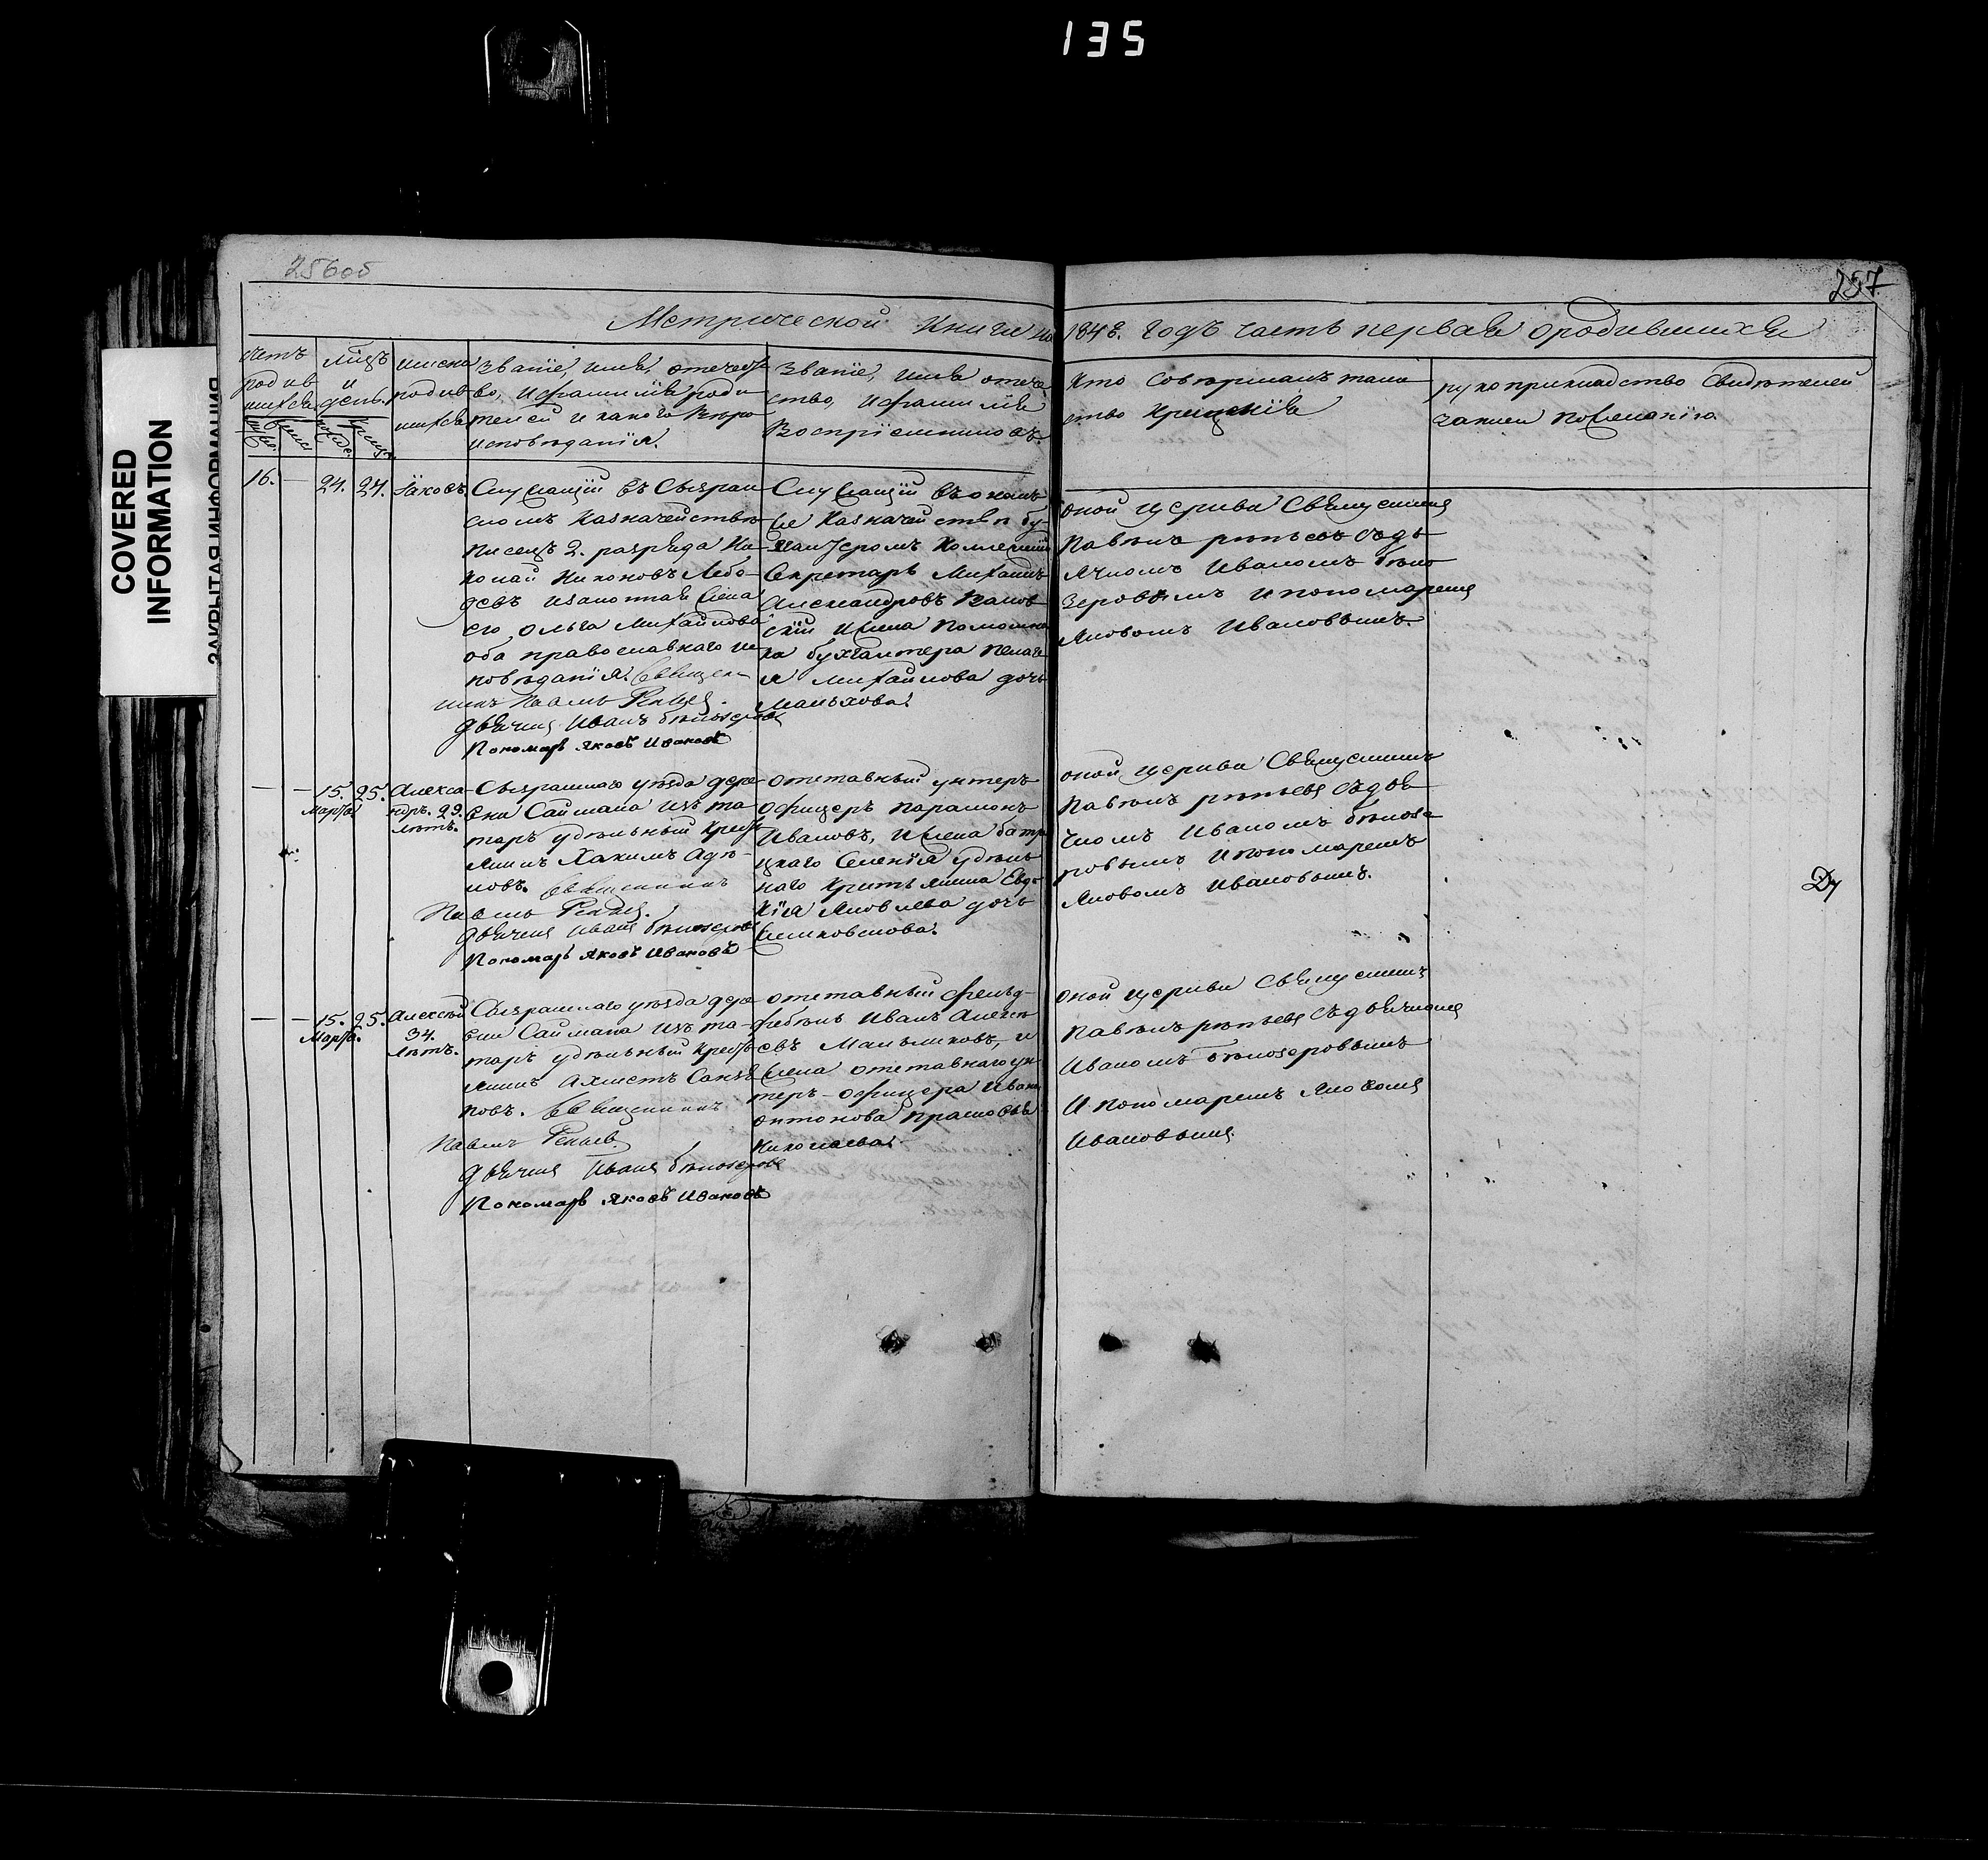 135
COVERED
INFORMATION
ЗАКРЫТАЯ ИНФОРМАЦИЯ
256об
257
Метрической книги на 1848. годъ часть первая о родившихся
счетъ
родив
шихся
Мѣсяцъ
и
день.
имена
родив
шихся
Званіе, имя, отечест
во, и фамилія роди
телей и какого вѣро
исповѣданія.
Званіе, имя отече
ство, и фамилія
Воспріемниковъ.
Кто совершалъ таин
ство крещенія
рукоприкладство свидѣтелей
записи по желанію
16. — 24. 24. Іаковъ.
Служащій въ Сызран
скомъ Казначействѣ
писецъ 2. разряда Ни
колай Никоновъ Лебе
девъ и законная жена
его, Ольга Михайлова
оба православнаго ис
повѣданія. Священ
никъ Павелъ Репьев.
Дьячекъ Иванъ бѣлозеровъ
Пономарь Яковъ Ивановъ
Служащій въ ономъ
же Казначействѣ бу-
халтеромъ Коллежскій
Секретарь Михаилъ
Александровъ
скій и жена помощни
ка бухгалтера Пелаге
я Михайлова дочь
Оной церкви Священникъ
Павелъ рѣпьевъ съ дь
ячкомъ Иваномъ бѣло
зеровымъ и пономаремъ
Яковомъ Ивановымъ.
— — 15. 25. Алекса
Марта ндръ. 29.
лѣтъ.
Сызранскаго уѣзда дере
вни Саймана изъ та
таръ удѣльный Крестья
янинъ Хакимъ Адѣ
ловъ. Священникъ
Павелъ Репьев.
Дьячекъ Иванъ бѣлозеровъ
Пономарь Яковъ Ивановъ
отставный унтеръ
офицеръ Парамонъ
Ивановъ, и жена батра
цкаго селенія удѣль
наго крестьянина Евдо
кія Яковлева дочь
Оной церкви Священникъ
Павелъ рѣпьевъ съ дья
чкомъ Иваномъ бѣлозе
ровымъ и пономаремъ
Яковомъ Ивановымъ.
Ду
— — 15. 25. Алексѣй
Марта. 34.
лѣтъ.
Сызранскаго уѣзда дере
вни Саймана изъ та-
таръ удѣльный Кресть
янинъ Ахметъ
повъ. Священникъ
Павелъ Репьев
Дьячекъ Иванъ бѣлозеровъ
Пономарь Яковъ Ивановъ
отставный фельд-
фебель Иванъ Алексѣ
евъ Мальмиковъ, и
жена отставнаго ун
теръ-офицера Ивана
Антонова Прасковья
Николаева.
Оной церкви Священникъ
Павелъ рѣпьевъ съ дьячкомъ
Иваномъ бѣлозеровымъ
и пономаремъ Яковомъ
Ивановымъ.